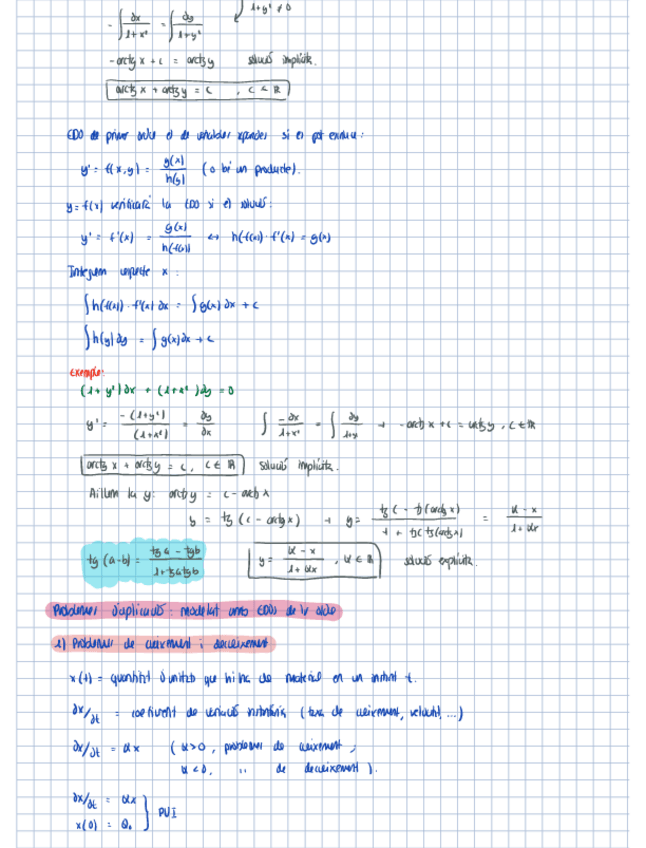 - ∫ ∂x / 1+x² = ∫ ∂y / 1+y² 1+y² ≠ 0
- arctg x + c = arctg y solució implícita.
arctg x + arctg y = c , c ∈ ℝ
EDO de primer ordre és de variables separades si es pot escriure:
y' = f(x,y) = g(x) / h(y) (o bé un producte).
y = f(x) verificarà la EDO si és solució:
y' = f'(x) = g(x) / h(f(x)) ↔ h(f(x)) · f'(x) = g(x)
Integrem respecte x :
∫ h(f(x)) · f'(x) ∂x = ∫ g(x) ∂x + c
∫ h(y) ∂y = ∫ g(x) ∂x + c
Exemple:
(1+y²)∂x + (1+x²)∂y = 0
y' = -(1+y²) / (1+x²) = ∂y / ∂x ∫ -∂x / 1+x² = ∫ ∂y / 1+y² → -arctg x + c = arctg y , c ∈ ℝ
arctg x + arctg y = c , c ∈ ℝ solució implícita.
Aïllem la y: arctg y = c - arctg x
y = tg (c - arctg x) → y = tg c - tg(arctg x) / 1 + tg c tg(arctg x) = α - x / 1 + αx
tg (a-b) = tg a - tg b / 1 + tg a tg b y = α - x / 1 + αx , α ∈ ℝ solució explícita.
Problemes d'aplicació: modelat amb EDOs de 1r ordre
1) Problemes de creixement i decreixement
x(t) = quantitat d'unitats que hi ha de material en un instant t.
∂x/∂t = coeficient de variació instantània (taxa de creixement, velocitat ...)
∂x/∂t = αx (α>0, problemes de creixement ;
α<0, '' de decreixement ).
∂x/∂t = αx
x(0) = Q₀ } PVI